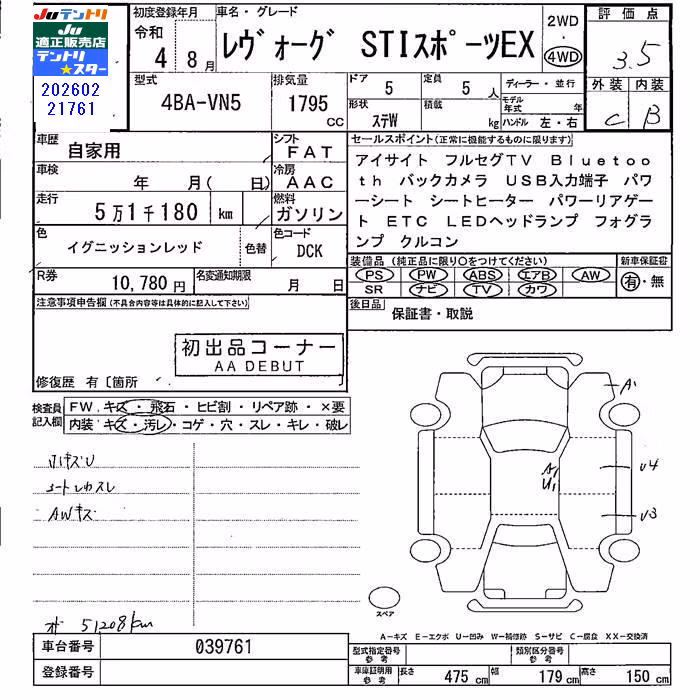 Juテントリ
Ju
適正販売店
テントリ
★スター
202602
21761
初度登録年月
令和
4年 8月
車名・グレード
レヴォーグ STIスポーツEX
2WD
・
4WD
評価点
3.5
外装 内装
C B
型式
4BA-VN5
排気量
1795
CC
ドア
5
定員
5 人
形状
ステW
積載
kg
ディーラー・並行
モデル年式 年
ハンドル 左・右
車歴
自家用
シフト
FAT
車検
年 月( 日)
冷房
AAC
走行
5万1千180 km
燃料
ガソリン
色
イグニッションレッド
色替
色コード
DCK
R券
10,780円
名変通知期限
月 日
セールスポイント(正常に機能するものに限ります)
アイサイト フルセグTV Bluetoo
th バックカメラ USB入力端子 パワ
ーシート シートヒーター パワーリアゲー
ト ETC LEDヘッドランプ フォグラ
ンプ クルコン
装備品(純正品に限り○をつけてください)
新車保証書
PS PW ABS エアB AW
SR ナビ TV カワ
有・無
後日品
保証書・取説
注意事項申告欄(不具合内容等は具体的に記入して下さい)
初出品コーナー
AA DEBUT
修復歴 有〔箇所 〕
検査員
記入欄
FW.キズ・飛石・ヒビ割・リペア跡・×要
内装.キズ・汚レ・コゲ・穴・スレ・キレ・破レ
小キズU
シートしわスレ
AWキズ
51208km
A1
A1
U1
U4
U3
スペア
A-キズ E-エクボ U-凹み W-補修跡 S-サビ C-腐食 XX-交換済
車台番号
039761
登録番号
型式指定番号
参考
類別区分番号
参考
車庫証明用
参考
長さ 475 cm 幅 179 cm 高さ 150 cm